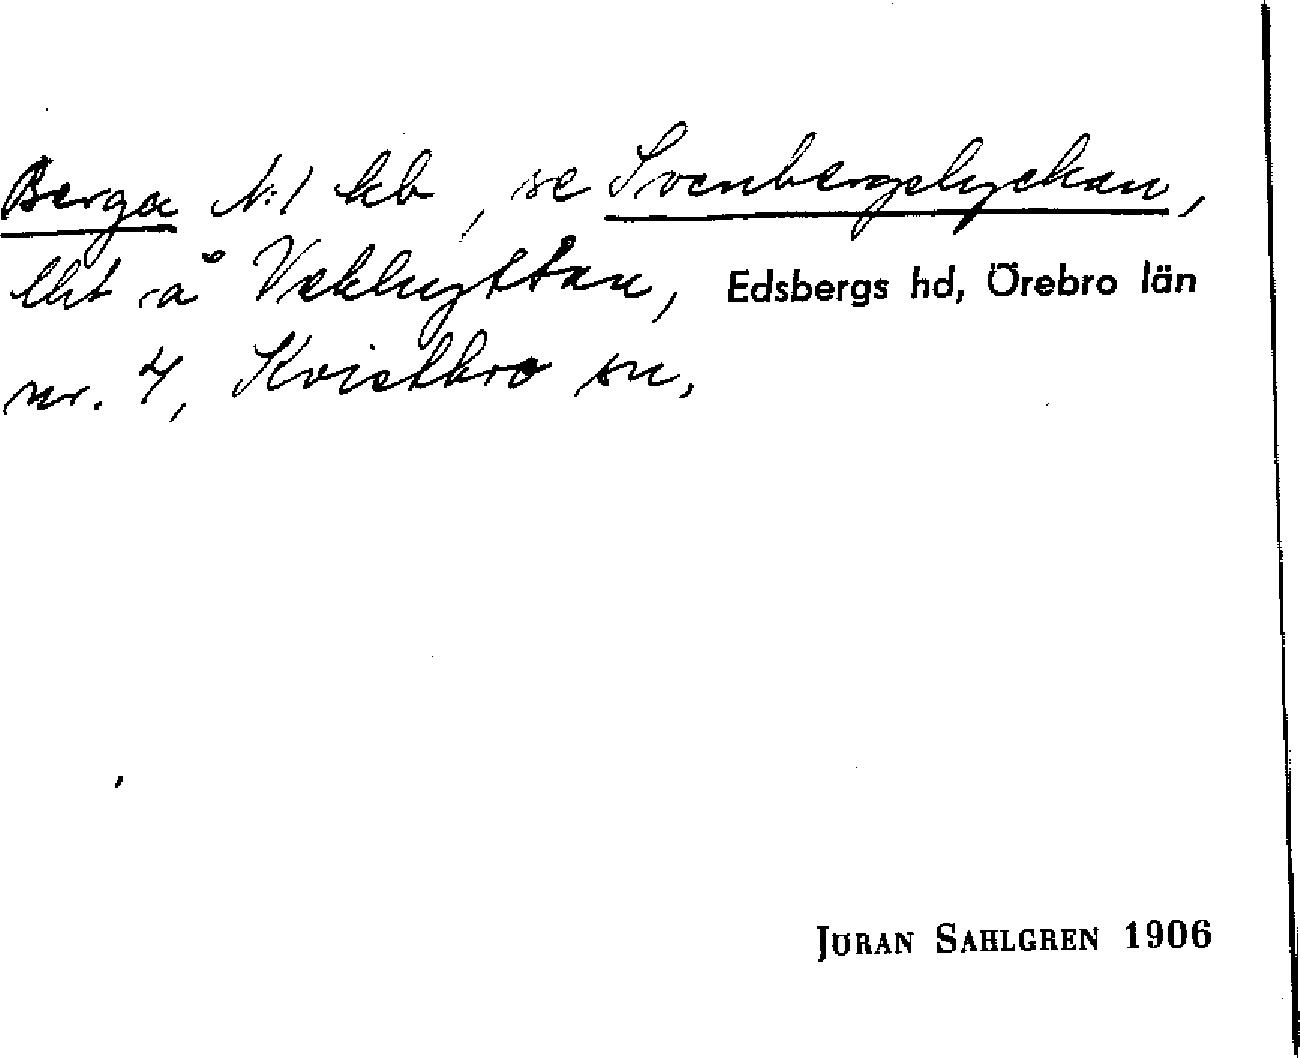 Berga N:1 hb, se Svenbergslyckan,
lht å Vekhyttan, Edsbergs hd, Örebro län
nr. 4, Kvistbro sn,
JÖRAN SAHLGREN 1906